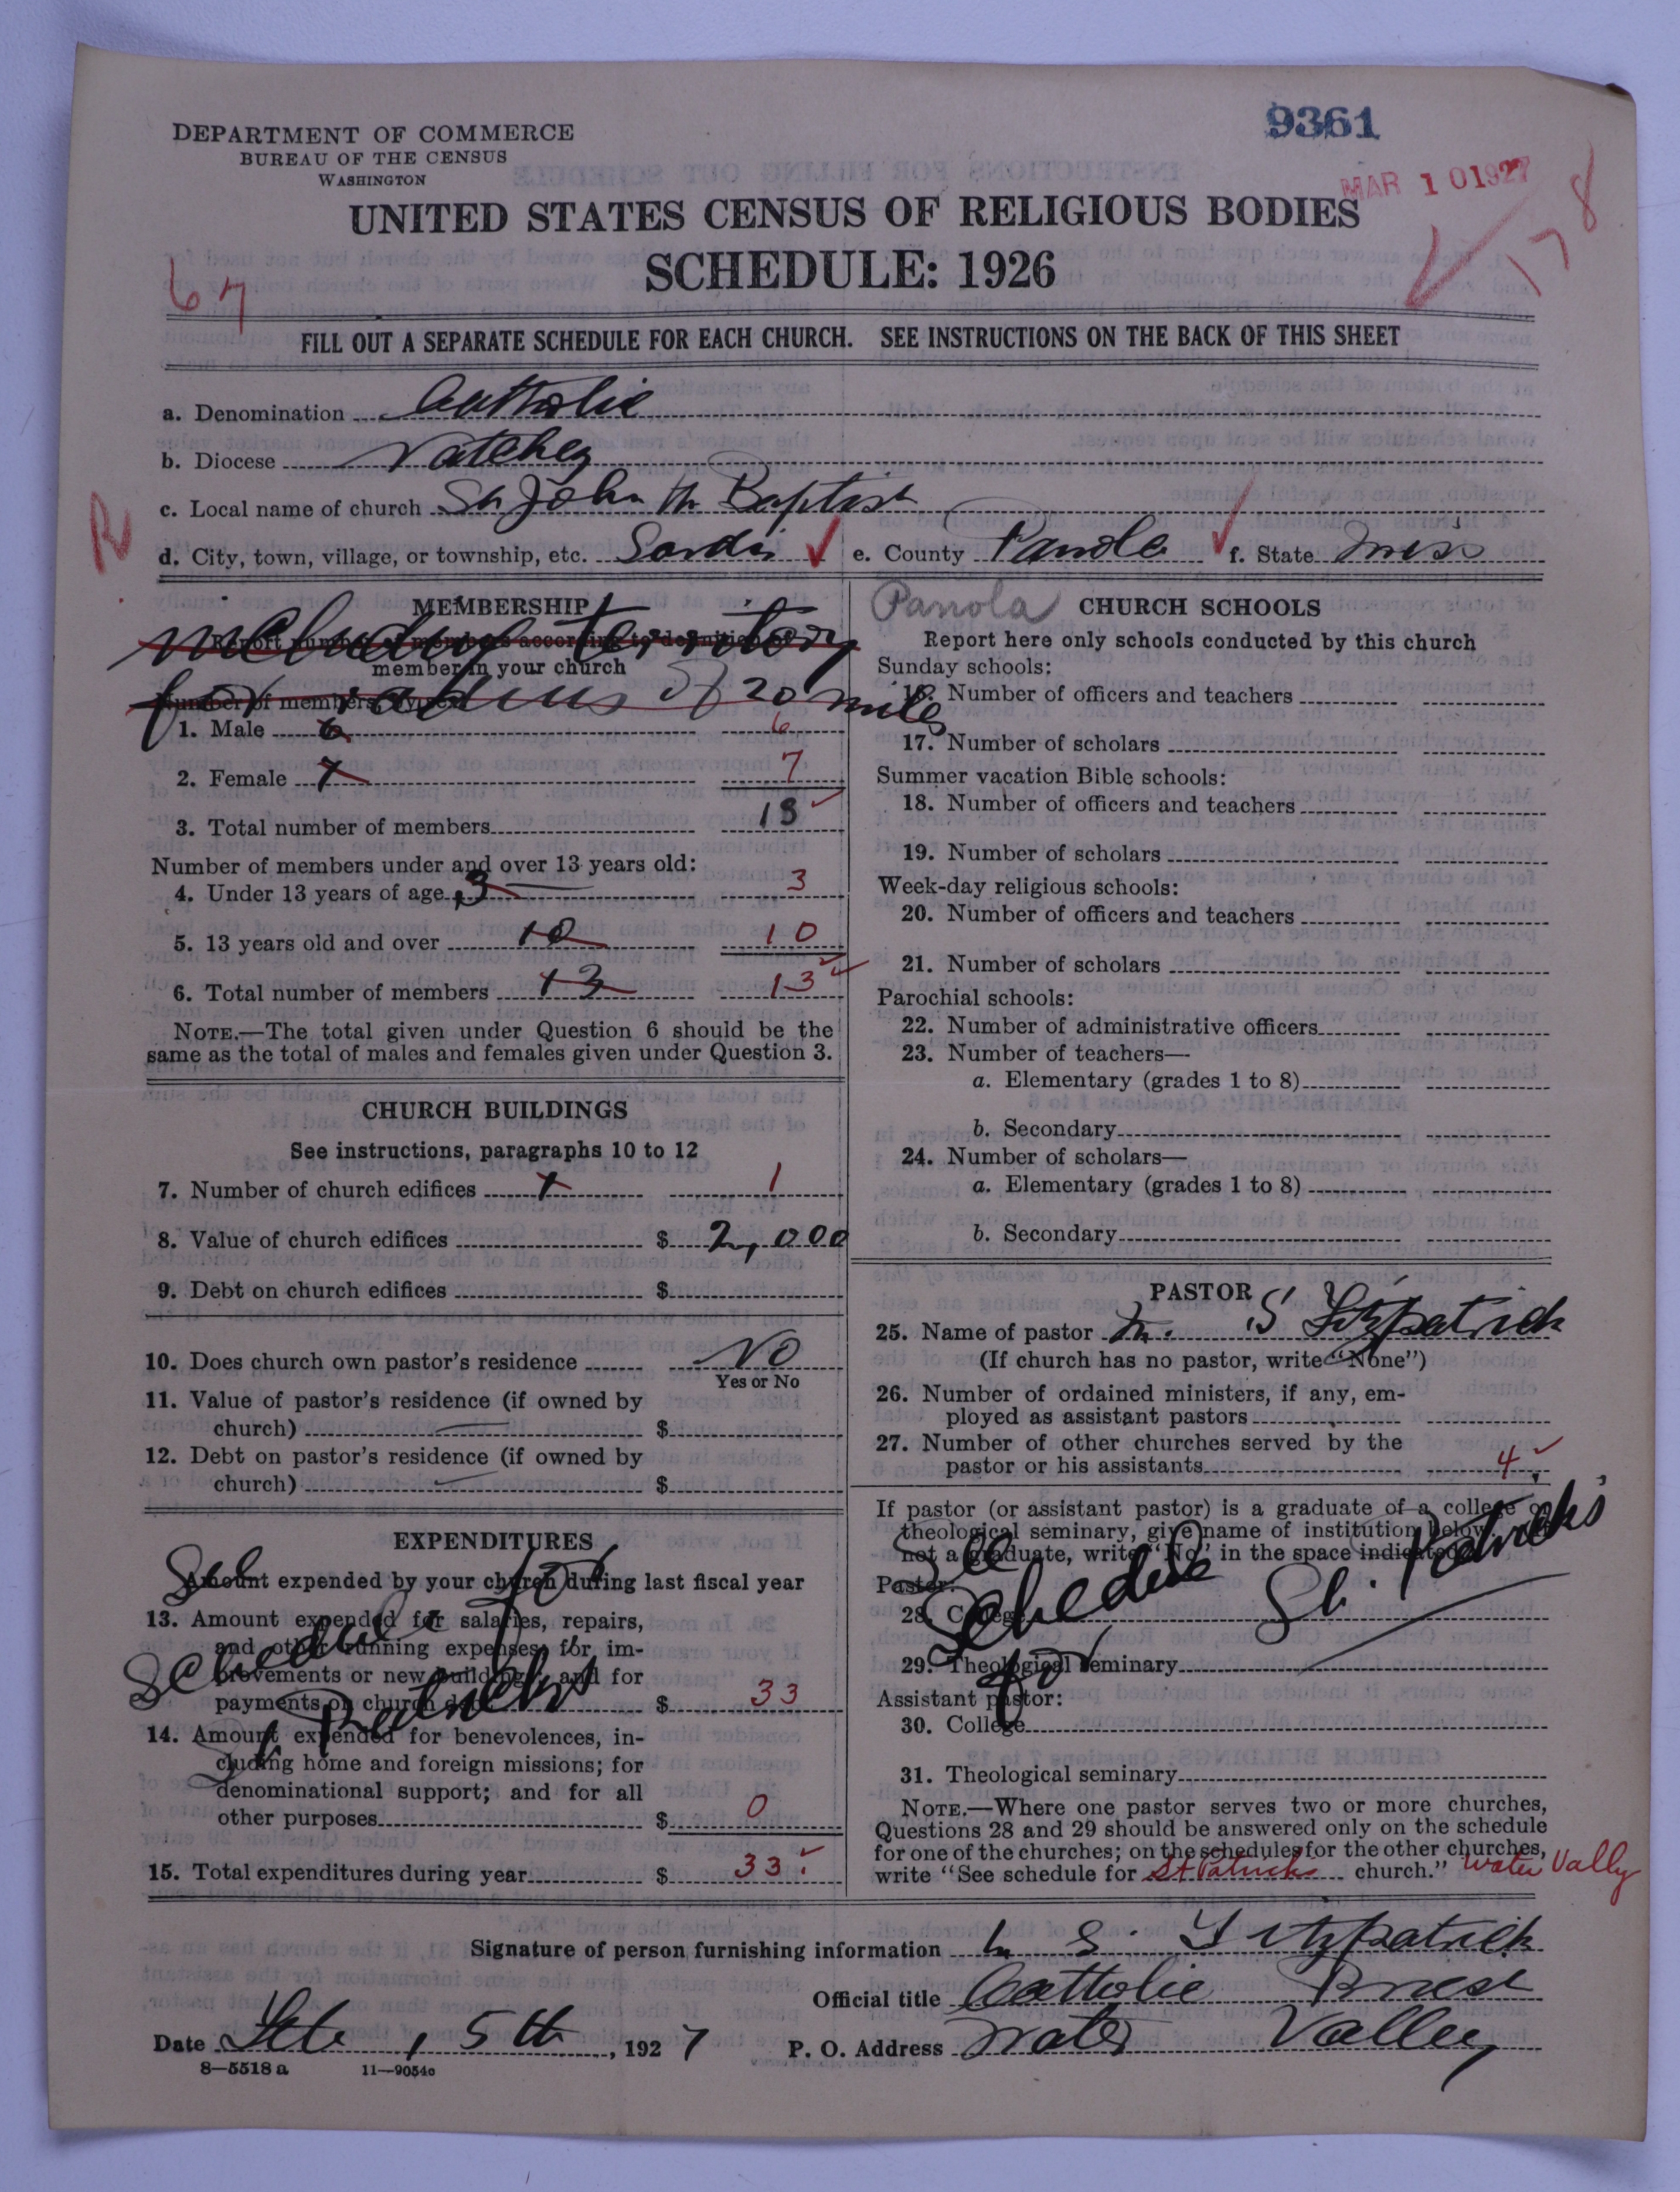 9361
DEPARTMENT OF COMMERCE
BUREAU OF THE CENSUS
WASHINGTON
MAR 10 1927
178
UNITED STATES CENSUS OF RELIGIOUS BODIES
SCHEDULE: 1926
67
FILL OUT A SEPARATE SCHEDULE FOR EACH CHURCH. SEE INSTRUCTIONS ON THE BACK OF THIS SHEET
a. Denomination Catholic
b. Diocese Natchez
c. Local name of church St John the Baptist
R
d. City, town, village, or township, etc. Sardis e. County Panola f. State Miss
MEMBERSHIP
including territory
Report number of members according to definition of
member in your church
for radius of 20 miles
Number of members by sex:
1. Male 6 6
2. Female 7 7
3. Total number of members 13
Number of members under and over 13 years old:
4. Under 13 years of age 3 3
5. 13 years old and over 10 10
6. Total number of members 13 13
NOTE.—The total given under Question 6 should be the
same as the total of males and females given under Question 3.
CHURCH BUILDINGS
See instructions, paragraphs 10 to 12
7. Number of church edifices 1 1
8. Value of church edifices $ 2,000
9. Debt on church edifices $
10. Does church own pastor's residence No
Yes or No
11. Value of pastor's residence (if owned by
church) $
12. Debt on pastor's residence (if owned by
church) $
EXPENDITURES
See
Schedule for
St. Patricks
Amount expended by your church during last fiscal year
13. Amount expended for salaries, repairs,
and other running expenses; for im-
provements or new buildings; and for
payments on church debt $ 33
14. Amount expended for benevolences, in-
cluding home and foreign missions; for
denominational support; and for all
other purposes $ 0
15. Total expenditures during year $ 33
Panola
CHURCH SCHOOLS
Report here only schools conducted by this church
Sunday schools:
16. Number of officers and teachers
17. Number of scholars
Summer vacation Bible schools:
18. Number of officers and teachers
19. Number of scholars
Week-day religious schools:
20. Number of officers and teachers
21. Number of scholars
Parochial schools:
22. Number of administrative officers
23. Number of teachers—
a. Elementary (grades 1 to 8)
b. Secondary
24. Number of scholars—
a. Elementary (grades 1 to 8)
b. Secondary
PASTOR
25. Name of pastor S Fitzpatrick
(If church has no pastor, write "None")
26. Number of ordained ministers, if any, em-
ployed as assistant pastors
27. Number of other churches served by the
pastor or his assistants 4
If pastor (or assistant pastor) is a graduate of a college or
theological seminary, give name of institution below.
not a graduate, write "No" in the space indicated
See
Schedule
for
St. Patricks
Pastor:
28. College
29. Theological seminary
Assistant pastor:
30. College
31. Theological seminary
NOTE.—Where one pastor serves two or more churches,
Questions 28 and 29 should be answered only on the schedule
for one of the churches; on the schedules for the other churches,
write "See schedule for St Patricks church." Water Vally
Signature of person furnishing information S. Fitzpatrick
Official title Catholic Priest
Date Feb, 5th, 1927 P. O. Address Water Valley
8—5518 a 11—9054c